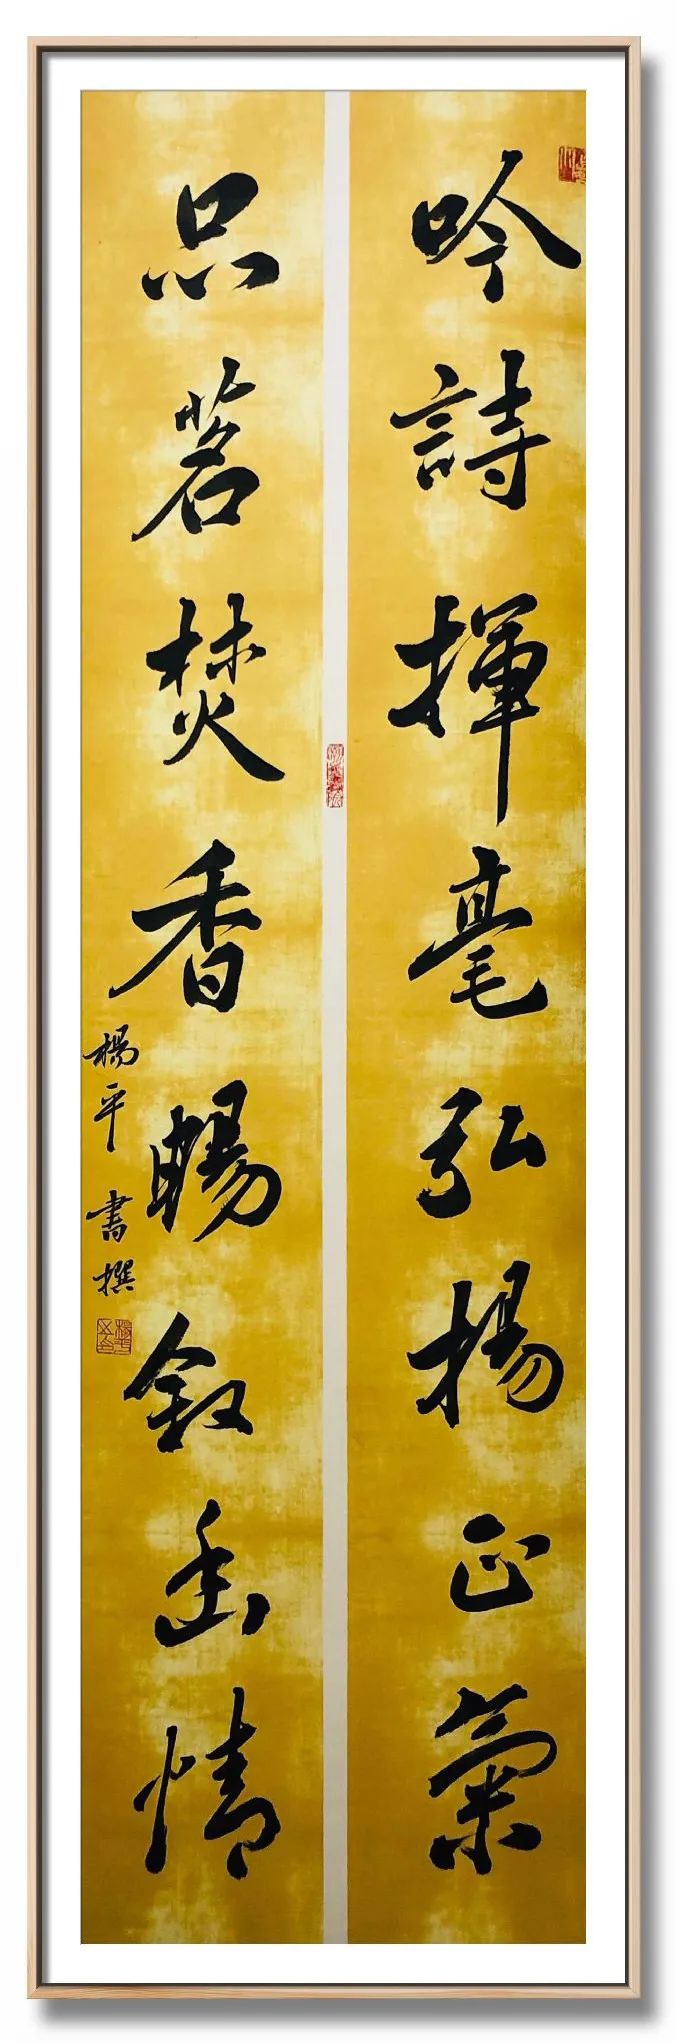 吟詩揮毫弘揚正氣
品茗焚香暢叙幽情
楊平書撰